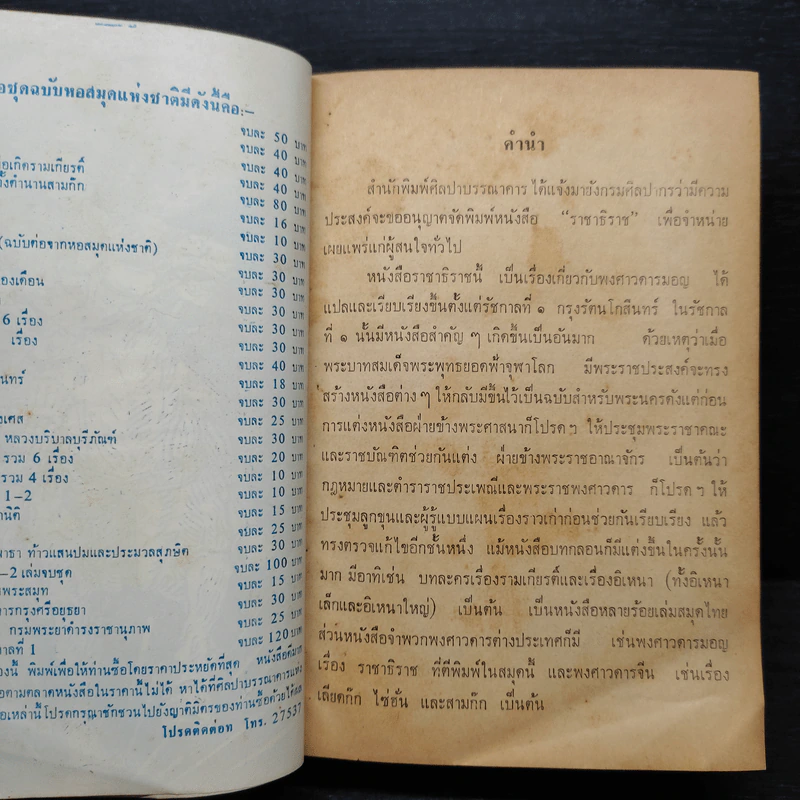 อชุดฉบับหอสมุดแห่งชาติมีดังนี้คือ:-
จบละ 50 บาท
จบละ 40 บาท
อเกิดรามเกียรติ์ จบละ 40 บาท
ั้งตำนานสามก๊ก จบละ 40 บาท
จบละ 80 บาท
จบละ 16 บาท
(ฉบับต่อจากหอสมุดแห่งชาติ) จบละ 10 บาท
จบละ 30 บาท
องเดือน จบละ 30 บาท
จบละ 30 บาท
6 เรื่อง จบละ 30 บาท
เรื่อง จบละ 30 บาท
จบละ 40 บาท
นทร์ จบละ 18 บาท
จบละ 30 บาท
งเศส จบละ 25 บาท
หลวงบริบาลบุรีภัณฑ์ จบละ 30 บาท
รวม 6 เรื่อง จบละ 20 บาท
รวม 4 เรื่อง จบละ 10 บาท
1-2 จบละ 10 บาท
านิติ จบละ 15 บาท
จบละ 25 บาท
พาธา ท้าวแสนปมและประมวลสุภษิต จบละ 30 บาท
-2 เล่มจบชุด จบละ 100 บาท
าพระสมุท จบละ 15 บาท
การกรุงศรีอยุธยา จบละ 30 บาท
กรมพระยาดำรงราชานุภาพ จบละ 25 บาท
าลที่ 1 จบละ 120 บาท
องนี้ พิมพ์เพื่อให้ท่านซื้อโดยราคาประหยัดที่สุด หนังสือดีมาก
อตามตลาดหนังสือในราคานี้ไม่ได้ หาได้ที่ศิลปาบรรณาคารแห่ง
อเหล่านี้โปรดกรุณาชักชวนไปยังญาติมิตรของท่านซื้อด้วยได้ผล
โปรดติดต่อท โทร. 27537
คำนำ
สำนักพิมพ์ศิลปาบรรณาคาร ได้แจ้งมายังกรมศิลปากรว่ามีความ
ประสงค์จะขออนุญาตจัดพิมพ์หนังสือ “ราชาธิราช” เพื่อจำหน่าย
เผยแพร่แก่ผู้สนใจทั่วไป
หนังสือราชาธิราชนี้ เป็นเรื่องเกี่ยวกับพงศาวดารมอญ ได้
แปลและเรียบเรียงขึ้นตั้งแต่รัชกาลที่ ๑ กรุงรัตนโกสินทร์ ในรัชกาล
ที่ ๑ นั้นมีหนังสือสำคัญ ๆ เกิดขึ้นเป็นอันมาก ด้วยเหตุว่าเมื่อ
พระบาทสมเด็จพระพุทธยอดฟ้าจุฬาโลก มีพระราชประสงค์จะทรง
สร้างหนังสือต่าง ๆ ให้กลับมีขึ้นไว้เป็นฉบับสำหรับพระนครดังแต่ก่อน
การแต่งหนังสือฝ่ายข้างพระศาสนาก็โปรด ฯ ให้ประชุมพระราชาคณะ
และราชบัณฑิตช่วยกันแต่ง ฝ่ายข้างพระราชอาณาจักร เป็นต้นว่า
กฎหมายและตำราราชประเพณีและพระราชพงศาวดาร ก็โปรด ฯ ให้
ประชุมลูกขุนและผู้รู้แบบแผนเรื่องราวเก่าก่อนช่วยกันเรียบเรียง แล้ว
ทรงตรวจแก้ไขอีกชั้นหนึ่ง แม้หนังสือบทกลอนก็มีแต่งขึ้นในครั้งนั้น
มาก มีอาทิเช่น บทละครเรื่องรามเกียรติ์และเรื่องอิเหนา (ทั้งอิเหนา
เล็กและอิเหนาใหญ่) เป็นต้น เป็นหนังสือหลายร้อยเล่มสมุดไทย
ส่วนหนังสือจำพวกพงศาวดารต่างประเทศก็มี เช่นพงศาวดารมอญ
เรื่อง ราชาธิราช ที่ตีพิมพ์ในสมุดนี้ และพงศาวดารจีน เช่นเรื่อง
เลียดก๊ก ไซ่ฮั่น และสามก๊ก เป็นต้น